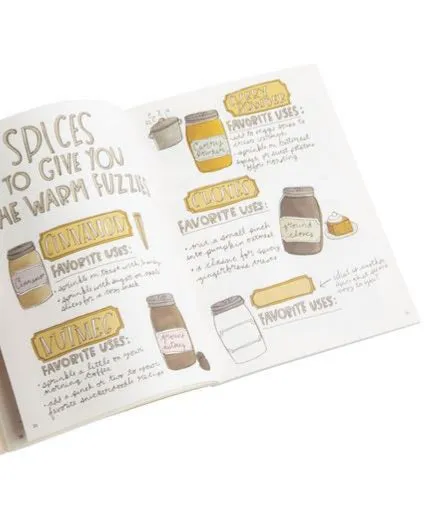 SPICES
TO GIVE YOU
THE WARM FUZZIES
CINNAMON
FAVORITE USES:
• sprinkle on toast with honey
• sprinkle with sugar on apple
slices for a cozy snack
Cinnamon
NUTMEG
FAVORITE USES:
• sprinkle a little on your
morning coffee
• add a pinch or two to your
favorite snickerdoodle recipe
ground
nutmeg
CURRY
POWDER
FAVORITE USES:
• add to
• sprinkle on buttered
before roasting
Curry
powder
CLOVES
FAVORITE USES:
• add a small pinch
into pumpkin oatmeal
• a classic for spicy
gingerbread
ground
cloves
FAVORITE USES:
what is another
spice that feels
cozy to you?